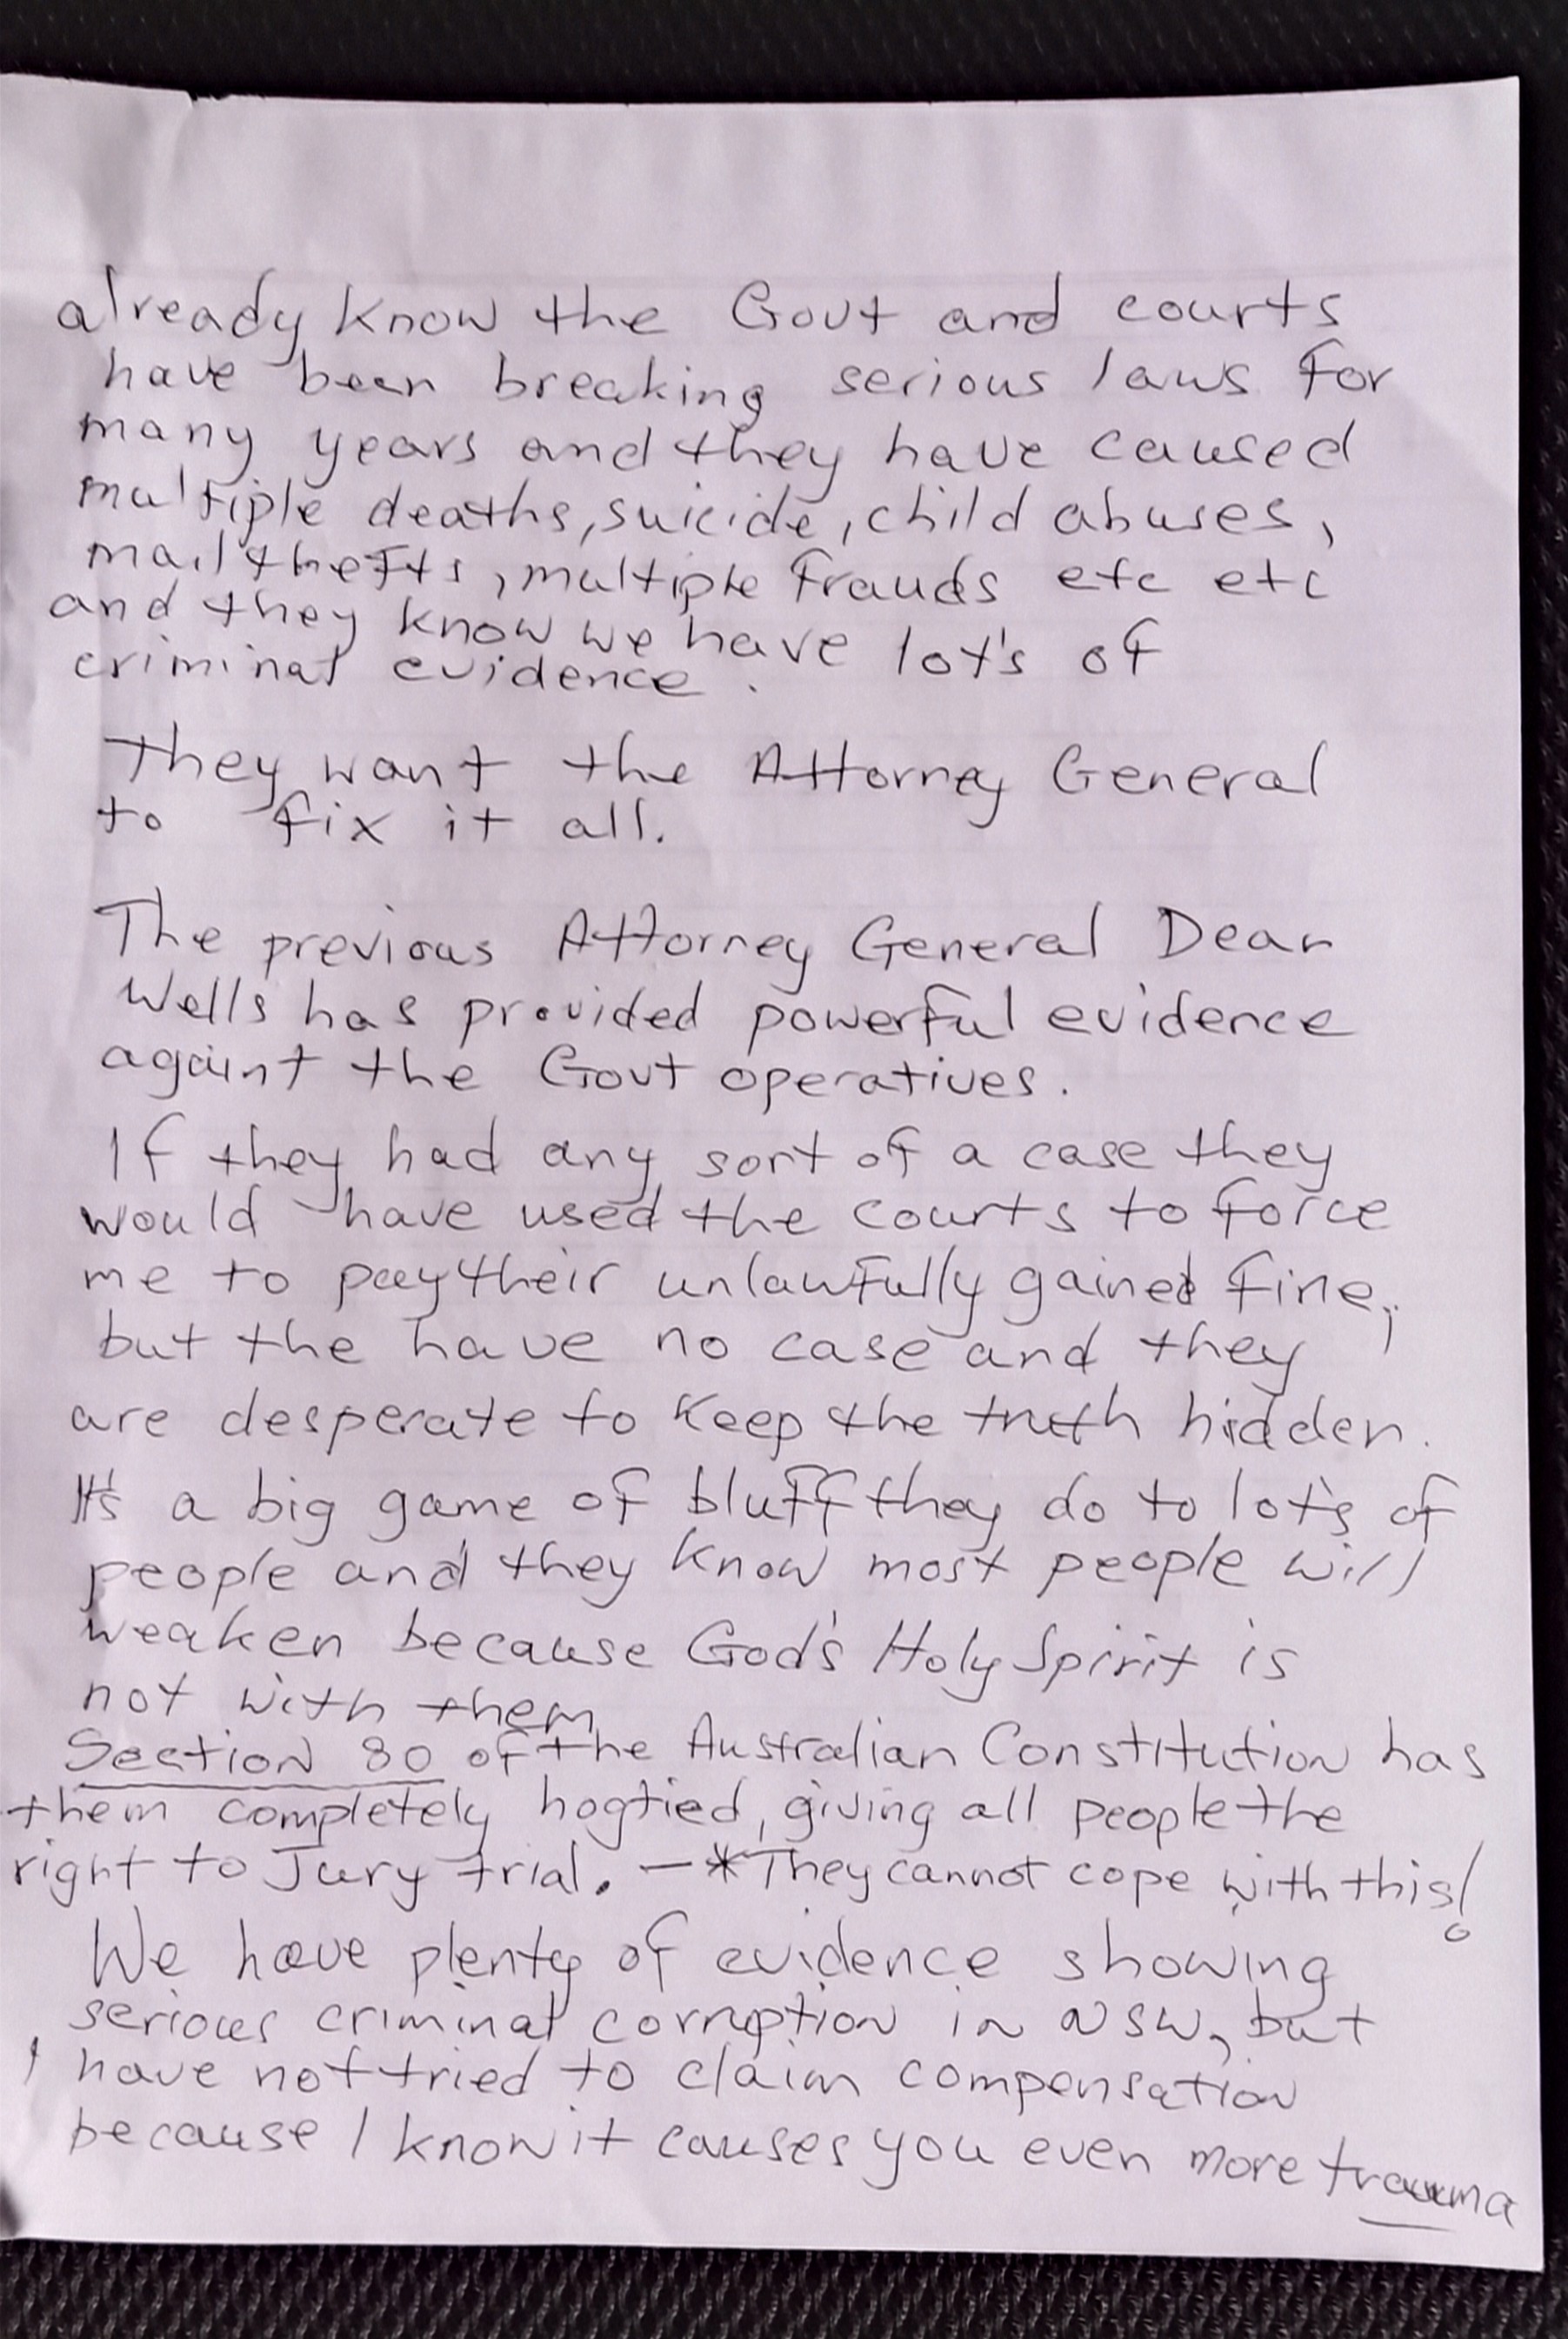 already know the Govt and courts
have been breaking serious laws for
many years and they have caused
multiple deaths, suicide, child abuses,
mail thefts, multiple frauds etc etc
and they know we have lot's of
criminal evidence.
They want the Attorney General
to fix it all.
The previous Attorney General Dean
Wells has provided powerful evidence
againt the Govt operatives.
If they had any sort of a case they
would have used the courts to force
me to pay their unlawfully gained fine,
but the have no case and they
are desperate to keep the truth hidden.
It's a big game of bluff they do to lot's of
people and they know most people will
weaken because God's Holy Spirit is
not with them
Section 80 of the Australian Constitution has
them completely hogtied, giving all people the
right to Jury trial. —*They cannot cope with this!
We have plenty of evidence showing
serious criminal corruption in NSW, but
I have not tried to claim compensation
because I know it causes you even more trauma